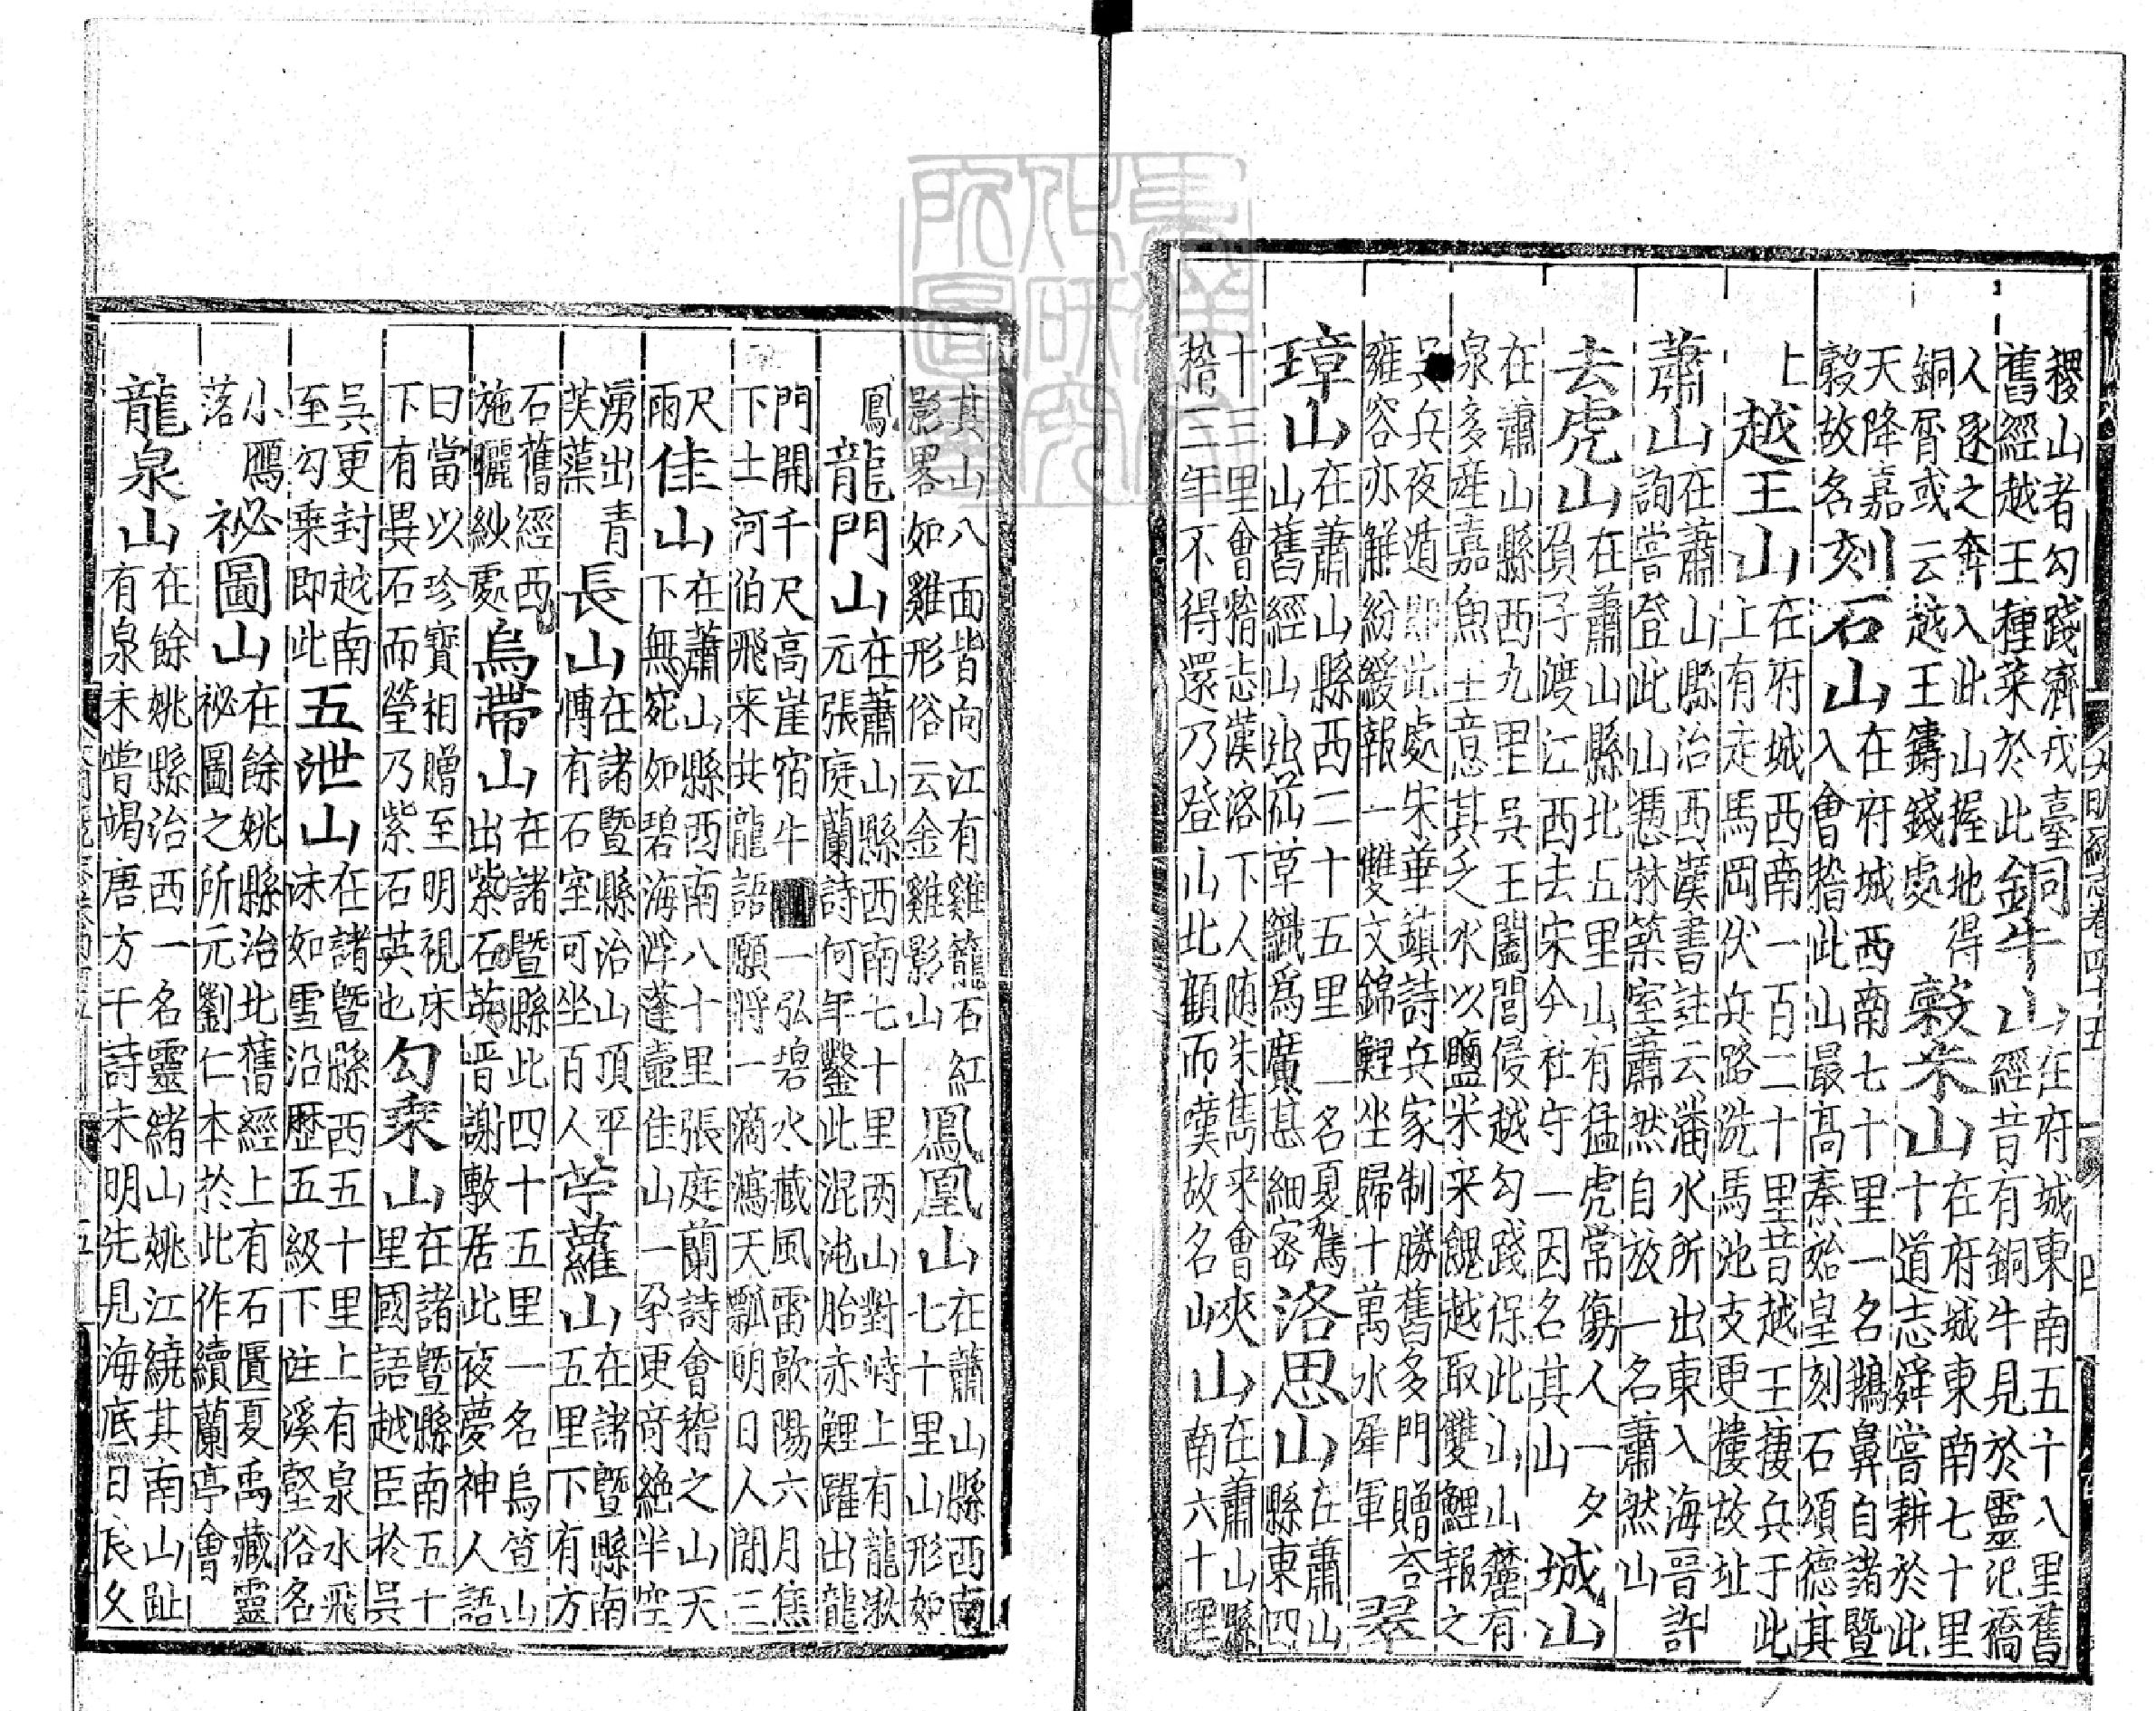 稷山者勾踐濟戎臺銅牛山在府城東南五十八里舊
舊經越王種菜於此 經昔有銅牛見於靈汜橋
人逐之奔入此山掘地得 榖米山在府城東南七十里
銅屑或云越王鑄錢處 十道志舜嘗耕於此
天降嘉 刻石山在府城西南七十里一名鵝鼻自諸暨
榖故名 入會稽此山最高秦始皇刻石頌德其
上越王山在府城西南一百二十里昔越王棲兵于此
上有走馬岡伏兵路洗馬池支更樓故址
蕭山在蕭山縣治西漢書註云潘水所出東入海晉許
詢嘗登此山憑林築室蕭然自放一名蕭然山
去虎山在蕭山縣北五里山有猛虎常傷人一夕
負子渡江西去宋今社守一因名其山城山
在蕭山縣西九里吳王闔閭侵越勾踐保此山山麓有
泉多產嘉魚王意其乏水以鹽米來餽越取雙鯉報之
吳兵夜遁即此處宋華鎮詩兵家制勝舊多門贈答
雍容亦解紛緩報一雙文錦鯉坐歸十萬水犀軍翠
璋山在蕭山縣西二十五里一名夏駕洛思山在蕭山
山舊經山出茈草纖爲廣甚細密 縣東四
十三里會稽志漢洛下人随朱雋来會 夾山在蕭山縣
稽三年不得還乃登山北顧而嘆故名山 南六十里
其山八面皆向江有雞籠石紅 鳳凰山在蕭山縣西南
影畧如雞形俗云金雞影山 七十里山形如
鳳龍門山在蕭山縣西南七十里两山對峙上有龍湫
元張庭蘭詩何年鑿此混沌胎赤鯉躍出龍
門開千尺高崖宿牛 一弘碧水藏風雷歊陽六月焦
下土河伯飛来共龍語願將一滴瀉天瓢明日人間三
尺佳山在蕭山縣西南八十里張庭蘭詩會稽之山天
雨下無宛如碧海浮蓬壺佳山一孕更奇絶半空
湧出青 長山在諸暨縣治山頂平苧蘿山在諸暨縣南
芙蕖 愽有石室可坐百人 五里下有方
石舊經西 烏帶山在諸暨縣此四十五里一名烏笪山
施曬紗處 出紫石英晋謝敷居此夜夢神人語
曰當以珍寳相贈至明視床 勾乗山在諸暨縣南五十
下有異石而瑩乃紫石英也 里國語越臣於吳
吳更封越南 五泄山在諸暨縣西五十里上有泉水飛
至勾乗即此 沫如雪沿歷五級下注溪壑俗名
小鴈 祕圖山在餘姚縣治北舊經上有石匱夏禹藏靈
落 祕圖之所元劉仁本於此作續蘭亭會
龍泉山在餘姚縣治西一名靈緒山姚江繞其南山趾
有泉未嘗竭唐方干詩未明先見海底日良久